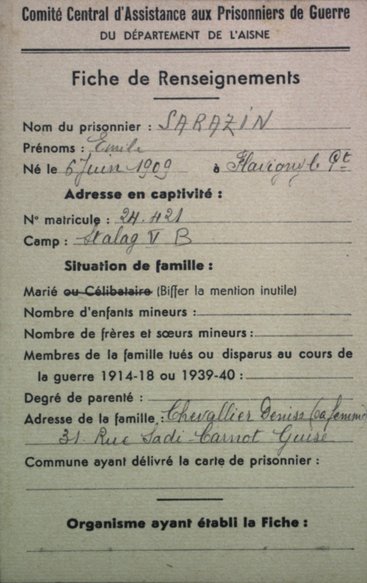 Comité Central d'Assistance aux Prisonniers de Guerre
DU DÉPARTEMENT DE L'AISNE
Fiche de Renseignements
Nom du prisonnier : SARAZIN
Prénoms : Emile
Né le 6 Juin 1909 à Flavigny le Gt
Adresse en captivité :
N° matricule : 24.421
Camp : Stalag V B
Situation de famille :
Marié ou Célibataire (Biffer la mention inutile)
Nombre d'enfants mineurs :
Nombre de frères et sœurs mineurs :
Membres de la famille tués ou disparus au cours de
la guerre 1914-18 ou 1939-40 :
Degré de parenté :
Adresse de la famille : Chevallier Denise (sa femme)
31 Rue Sadi-Carnot Guise
Commune ayant délivré la carte de prisonnier :
Organisme ayant établi la Fiche :